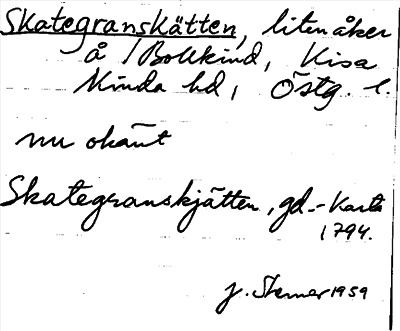 Skategranskätten, liten åker
å Bollkind, Kisa
Kinda hd, Östg. l.
nu okänt
Skategranskjätten, gd.- Karta
1794.
J. Sterner 1959